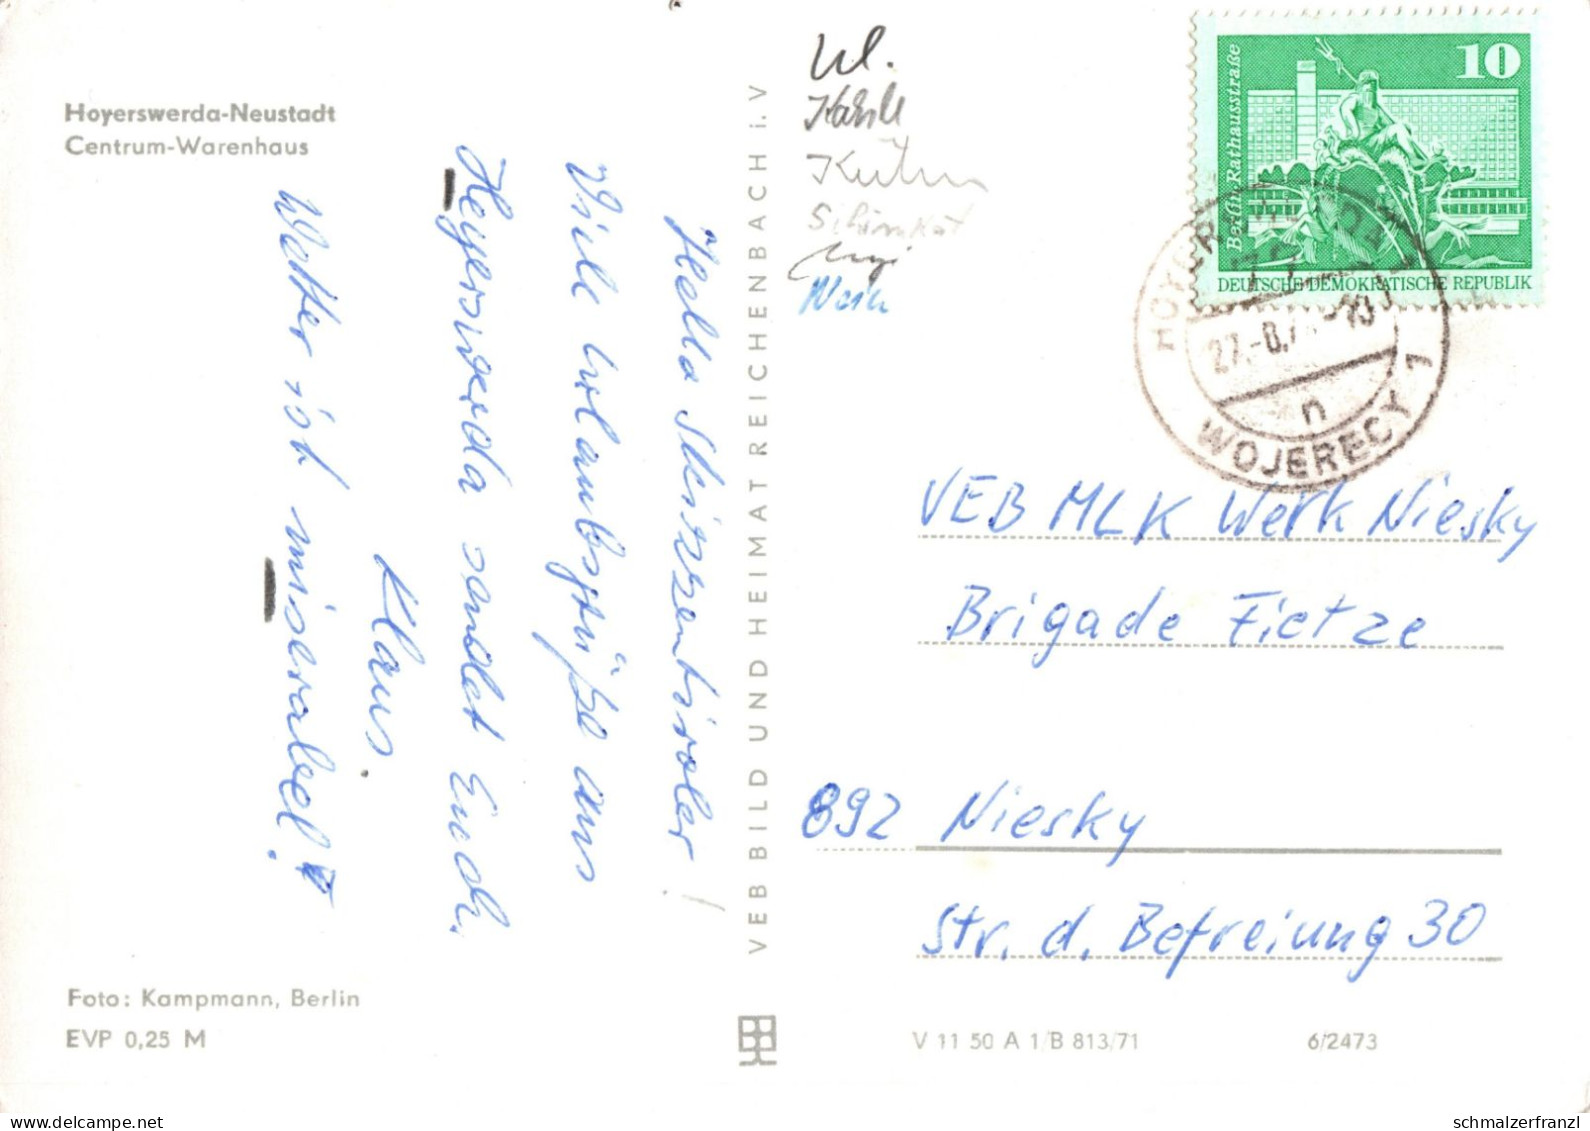 Hoyerswerda-Neustadt
Centrum-Warenhaus
Hella Skitzentiroler!
Viele Urlaubsgrüße aus
Hoyerswerda sendet Euch
Klaus.
Wetter ist miserabel!
Foto: Kampmann, Berlin
EVP 0,25 M
VEB BILD UND HEIMAT REICHENBACH i. V
Kühn
10
Berlin·Rathausstraße
DEUTSCHE DEMOKRATISCHE REPUBLIK
HOYERSWERDA 1
27.-8.7
n
WOJERECY 1
VEB MLK Werk Niesky
Brigade Fietze
892 Niesky
Str. d. Befreiung 30
V 11 50 A 1/B 813/71
6/2473
schmalzerfranzl